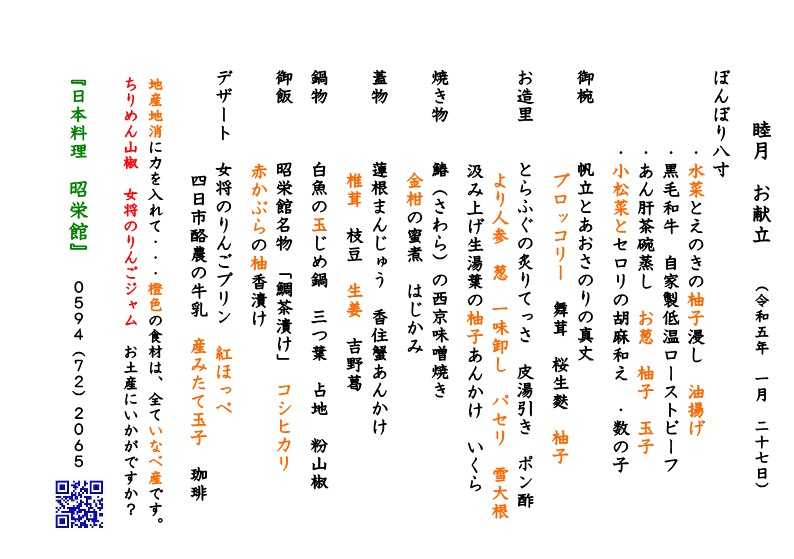 睦月　お献立　（令和五年　一月　二十七日）
ぼんぼり八寸
・水菜とえのきの柚子浸し　油揚げ
・黒毛和牛　自家製低温ローストビーフ
・あん肝茶碗蒸し　お葱　柚子　玉子
・小松菜とセロリの胡麻和え　・数の子
御椀　帆立とあおさのりの真丈
ブロッコリー　舞茸　桜生麩　柚子
お造里　とらふぐの炙りてっさ　皮湯引き　ポン酢
より人参　葱　一味卸し　パセリ　雪大根
汲み上げ生湯葉の柚子あんかけ　いくら
焼き物　鰆（さわら）の西京味噌焼き
金柑の蜜煮　はじかみ
蓋物　蓮根まんじゅう　香住蟹あんかけ
椎茸　枝豆　生姜　吉野葛
鍋物　白魚の玉じめ鍋　三つ葉　占地　粉山椒
御飯　昭栄館名物　「鯛茶漬け」　コシヒカリ
赤かぶらの柚香漬け
デザート　女将のりんごプリン　紅ほっぺ
四日市酪農の牛乳　産みたて玉子　珈琲
地産地消に力を入れて・・・橙色の食材は、全ていなべ産です。
ちりめん山椒　女将のりんごジャム　お土産にいかがですか？
『日本料理　昭栄館』　0594（72）2065